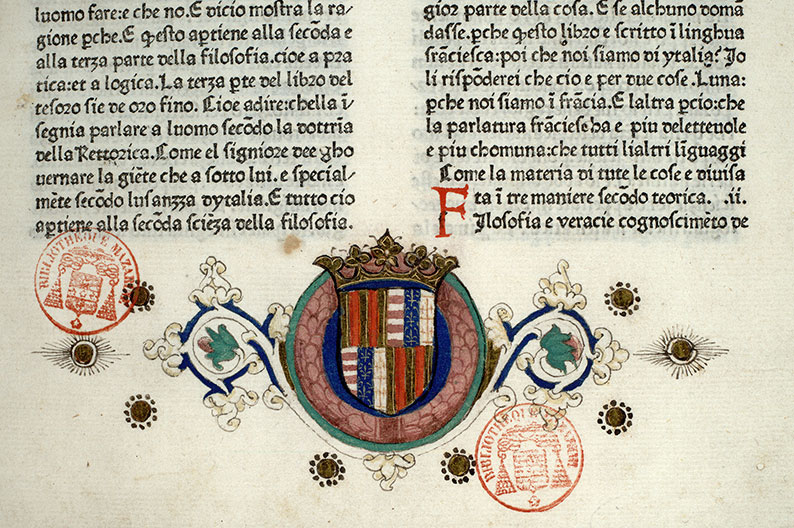 luomo fare:e che no.E vicio mostra la ra-
gione pche.E q̄sto aptiene alla secōda e
alla terza parte della filosofia.cioe a pra
tica:et a logica.La terza pte del libro del
tesoro sie de oro fino. Cioe adire:chella ī
segnia parlare a luomo secōdo la dottrīa
della Rettorica.Come el signiore dee gho
uernare la giēte che a sotto lui.e special-
mēte secōdo lusanzza dytalia.E tutto cio
aptiene alla secōda sciēza della filosofia.
gior parte della cosa. E se alchuno domā
dasse.pche q̄sto libro e scritto ī linghua
frāciesca:poi che noi siamo di ytalia? Jo
li rispōderei che cio e per due cose. Luna:
pche noi siamo ī frācia.E laltra pcio:che
la parlatura frāciescha e piu deletteuole
e piu chomuna:che tutti lialtri līguaggi
Come la materia di tute le cose e diuisa
F ta ī tre maniere secōdo teorica. .ii.
Ilosofia e veracie cognoscimēto de
BIBLIOTHEQUE MAZARINE
BIBLIOTHEQUE MAZARINE